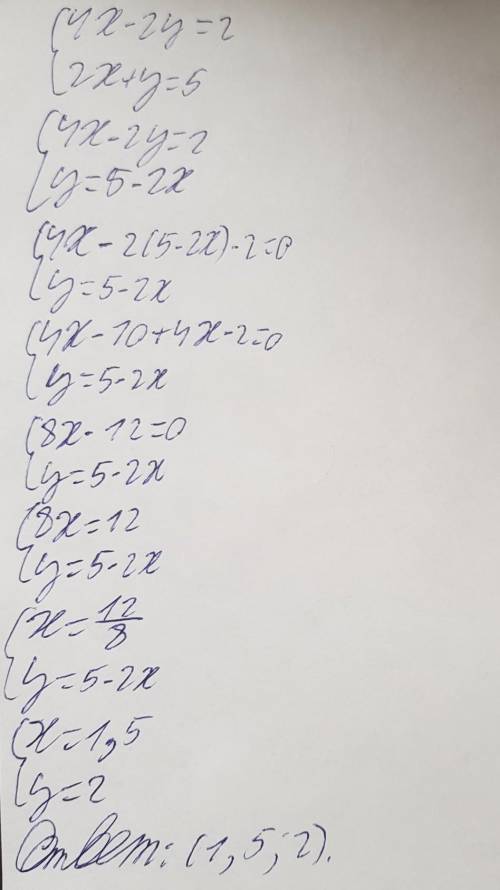 {4x-2y=2
{2x+y=5
{4x-2y=2
{y=5-2x
{4x-2(5-2x)-2=0
{y=5-2x
{4x-10+4x-2=0
{y=5-2x
{8x-12=0
{y=5-2x
{8x=12
{y=5-2x
{x=12/8
{y=5-2x
{x=1,5
{y=2
Ответ: (1,5;2).